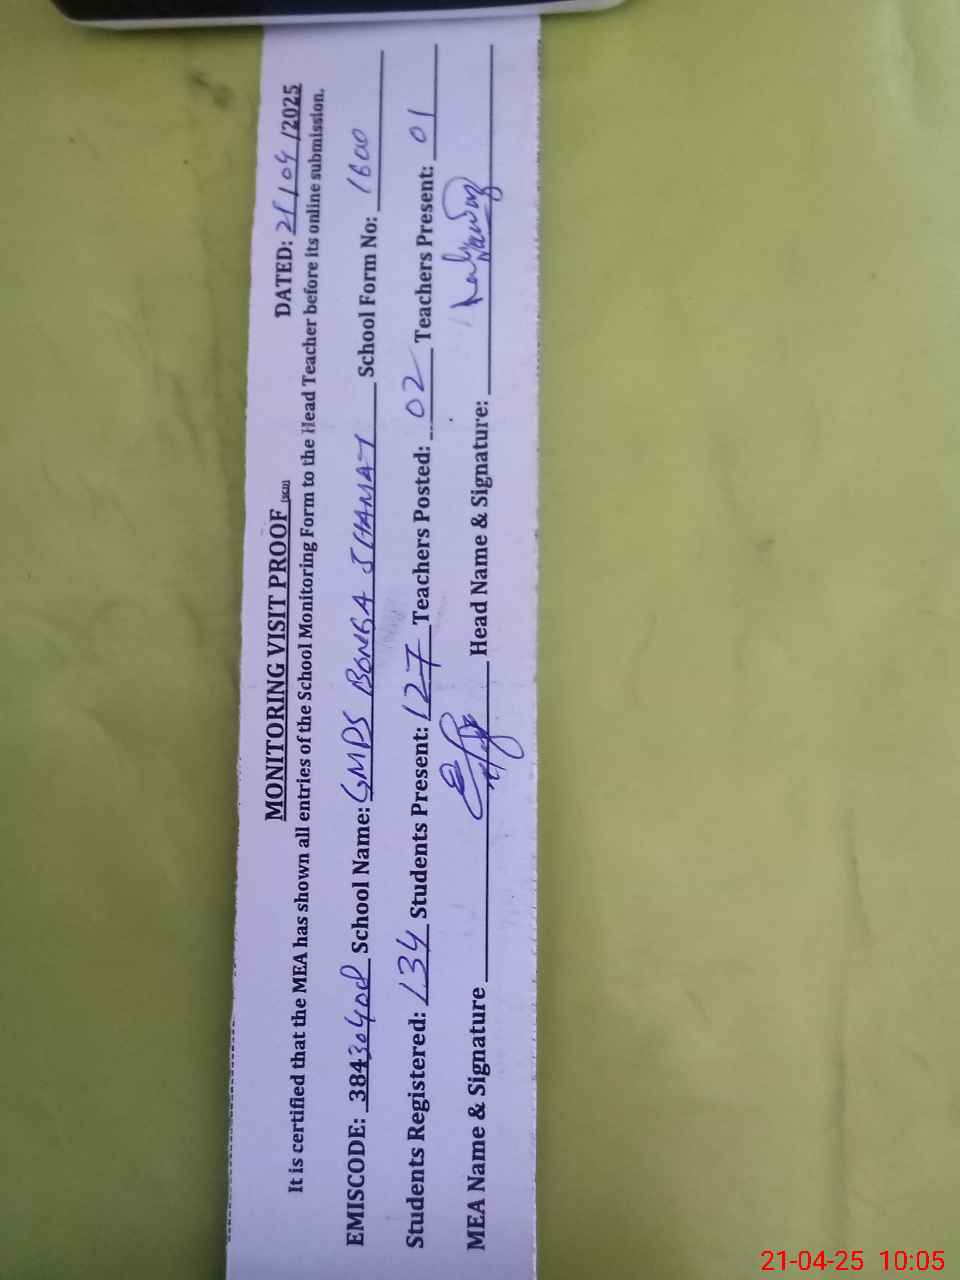 MONITORING VISIT PROOF (SCD) DATED: 21/04/2025
It is certified that the MEA has shown all entries of the School Monitoring Form to the Head Teacher before its online submission.
EMISCODE: 384304 School Name: GMPS BONGA JHAMAT School Form No: 1600
Students Registered: 134 Students Present: 127 Teachers Posted: 02 Teachers Present: 01
MEA Name & Signature Head Name & Signature: Nawaz
21-04-25 10:05